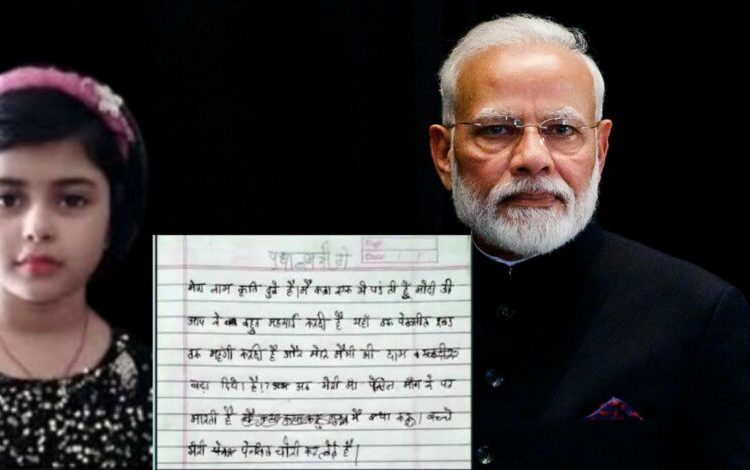 प्रधानमंत्री जी
Page
Date / /
मेरा नाम कृति दुबे है। मैं कक्षा एक में पढ़ती हूँ मोदी जी
आप ने बहुत महगाई करदी है यहाँ तक पेन्सील रबड़
तक महंगी करदी है और मेरे मैगी की दाम
बढ़ा दिये है। अब मेरी माँ पेंसिल माँगने पर
मारती है मैं क्या करू। बच्चे
मेरी पेन्सिल चोरी कर लेते है।